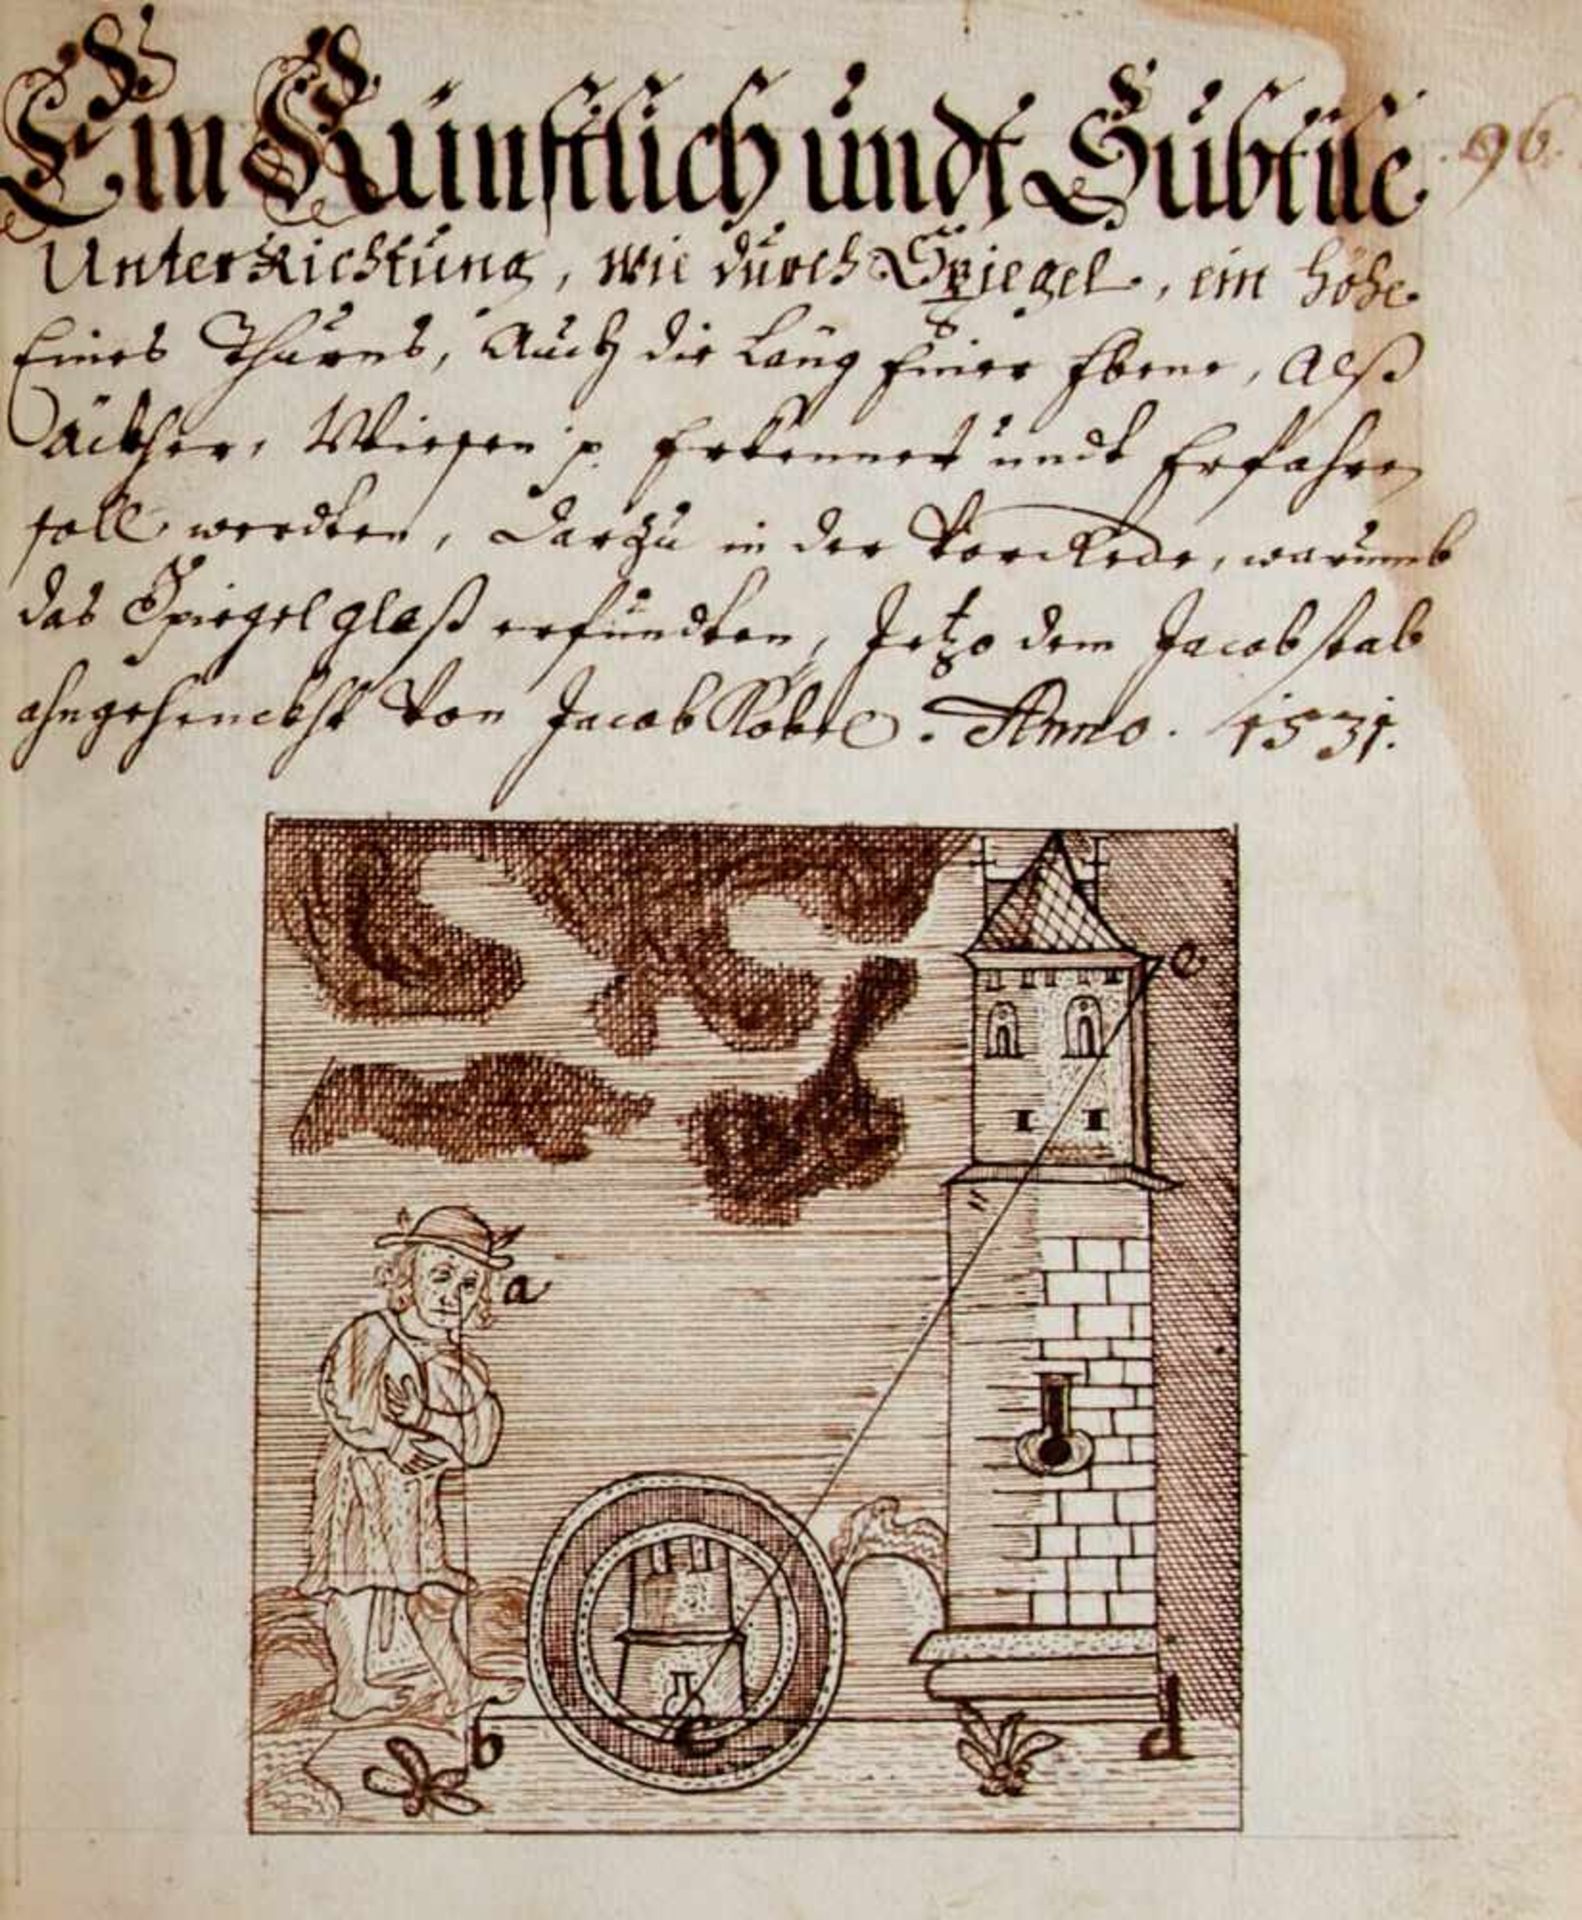 Ein Künstlich undt Subtile 96.
Unterrichtung, wie durch Spiegel, ein höhe
Eines Thurns, Auch die Läng Einer Ebene, Alß
Äckher, Wiesen p. Erkennet undt Erfahren
soll werdten, Darzu in der Vorrede, warumb
das Spiegel glaß erfundten, Jetzo dem Jacobstab
ahngehenckht Von Jacob Köbel. Anno. 1531.
e
a
b
c
d